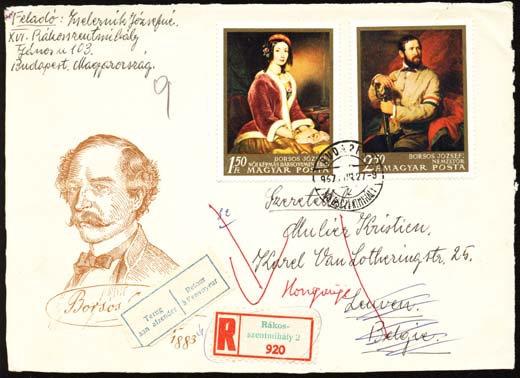 Feladó: Zselernik Józsefné
XVI. Rákosszentmihály
János u 103.
Budapest, Magyarország.
9
1.50 Ft
BORSOS JÓZSEF:
NŐI KÉPMÁS BÁRSONYMENTÉBEN
MAGYAR POSTA
2.50 Ft
BORSOS JÓZSEF:
NEMZETŐR
MAGYAR POSTA
Mulier Kristien.
Karel Van Lotheringstr. 25.
Hongarije
Leuven.
Belgie.
Borsos
1883
Terug
aan afzender
Retour
à l'envoyeur
R
Rákos-
szentmihály 2
920